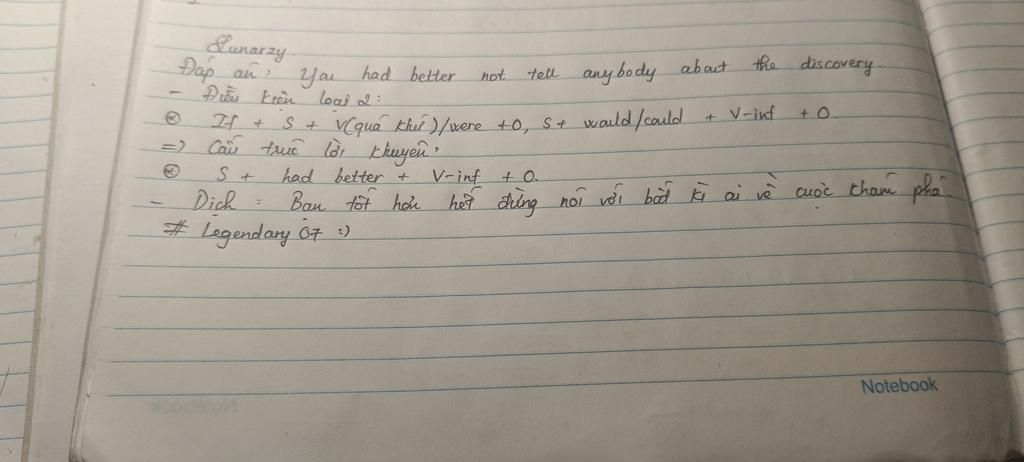 Lunarzy.
Đáp án: You had better not tell anybody about the discovery.
- Điều kiện loại 2:
⊛ If + S + V(quá khứ)/were + O, S + would/could + V-inf + O.
=> Cấu trúc lời khuyên:
⊛ S + had better + V-inf + O.
- Dịch: Bạn tốt hơn hết đừng nói với bất kì ai về cuộc khám phá.
# Legendary 07 :)
Notebook